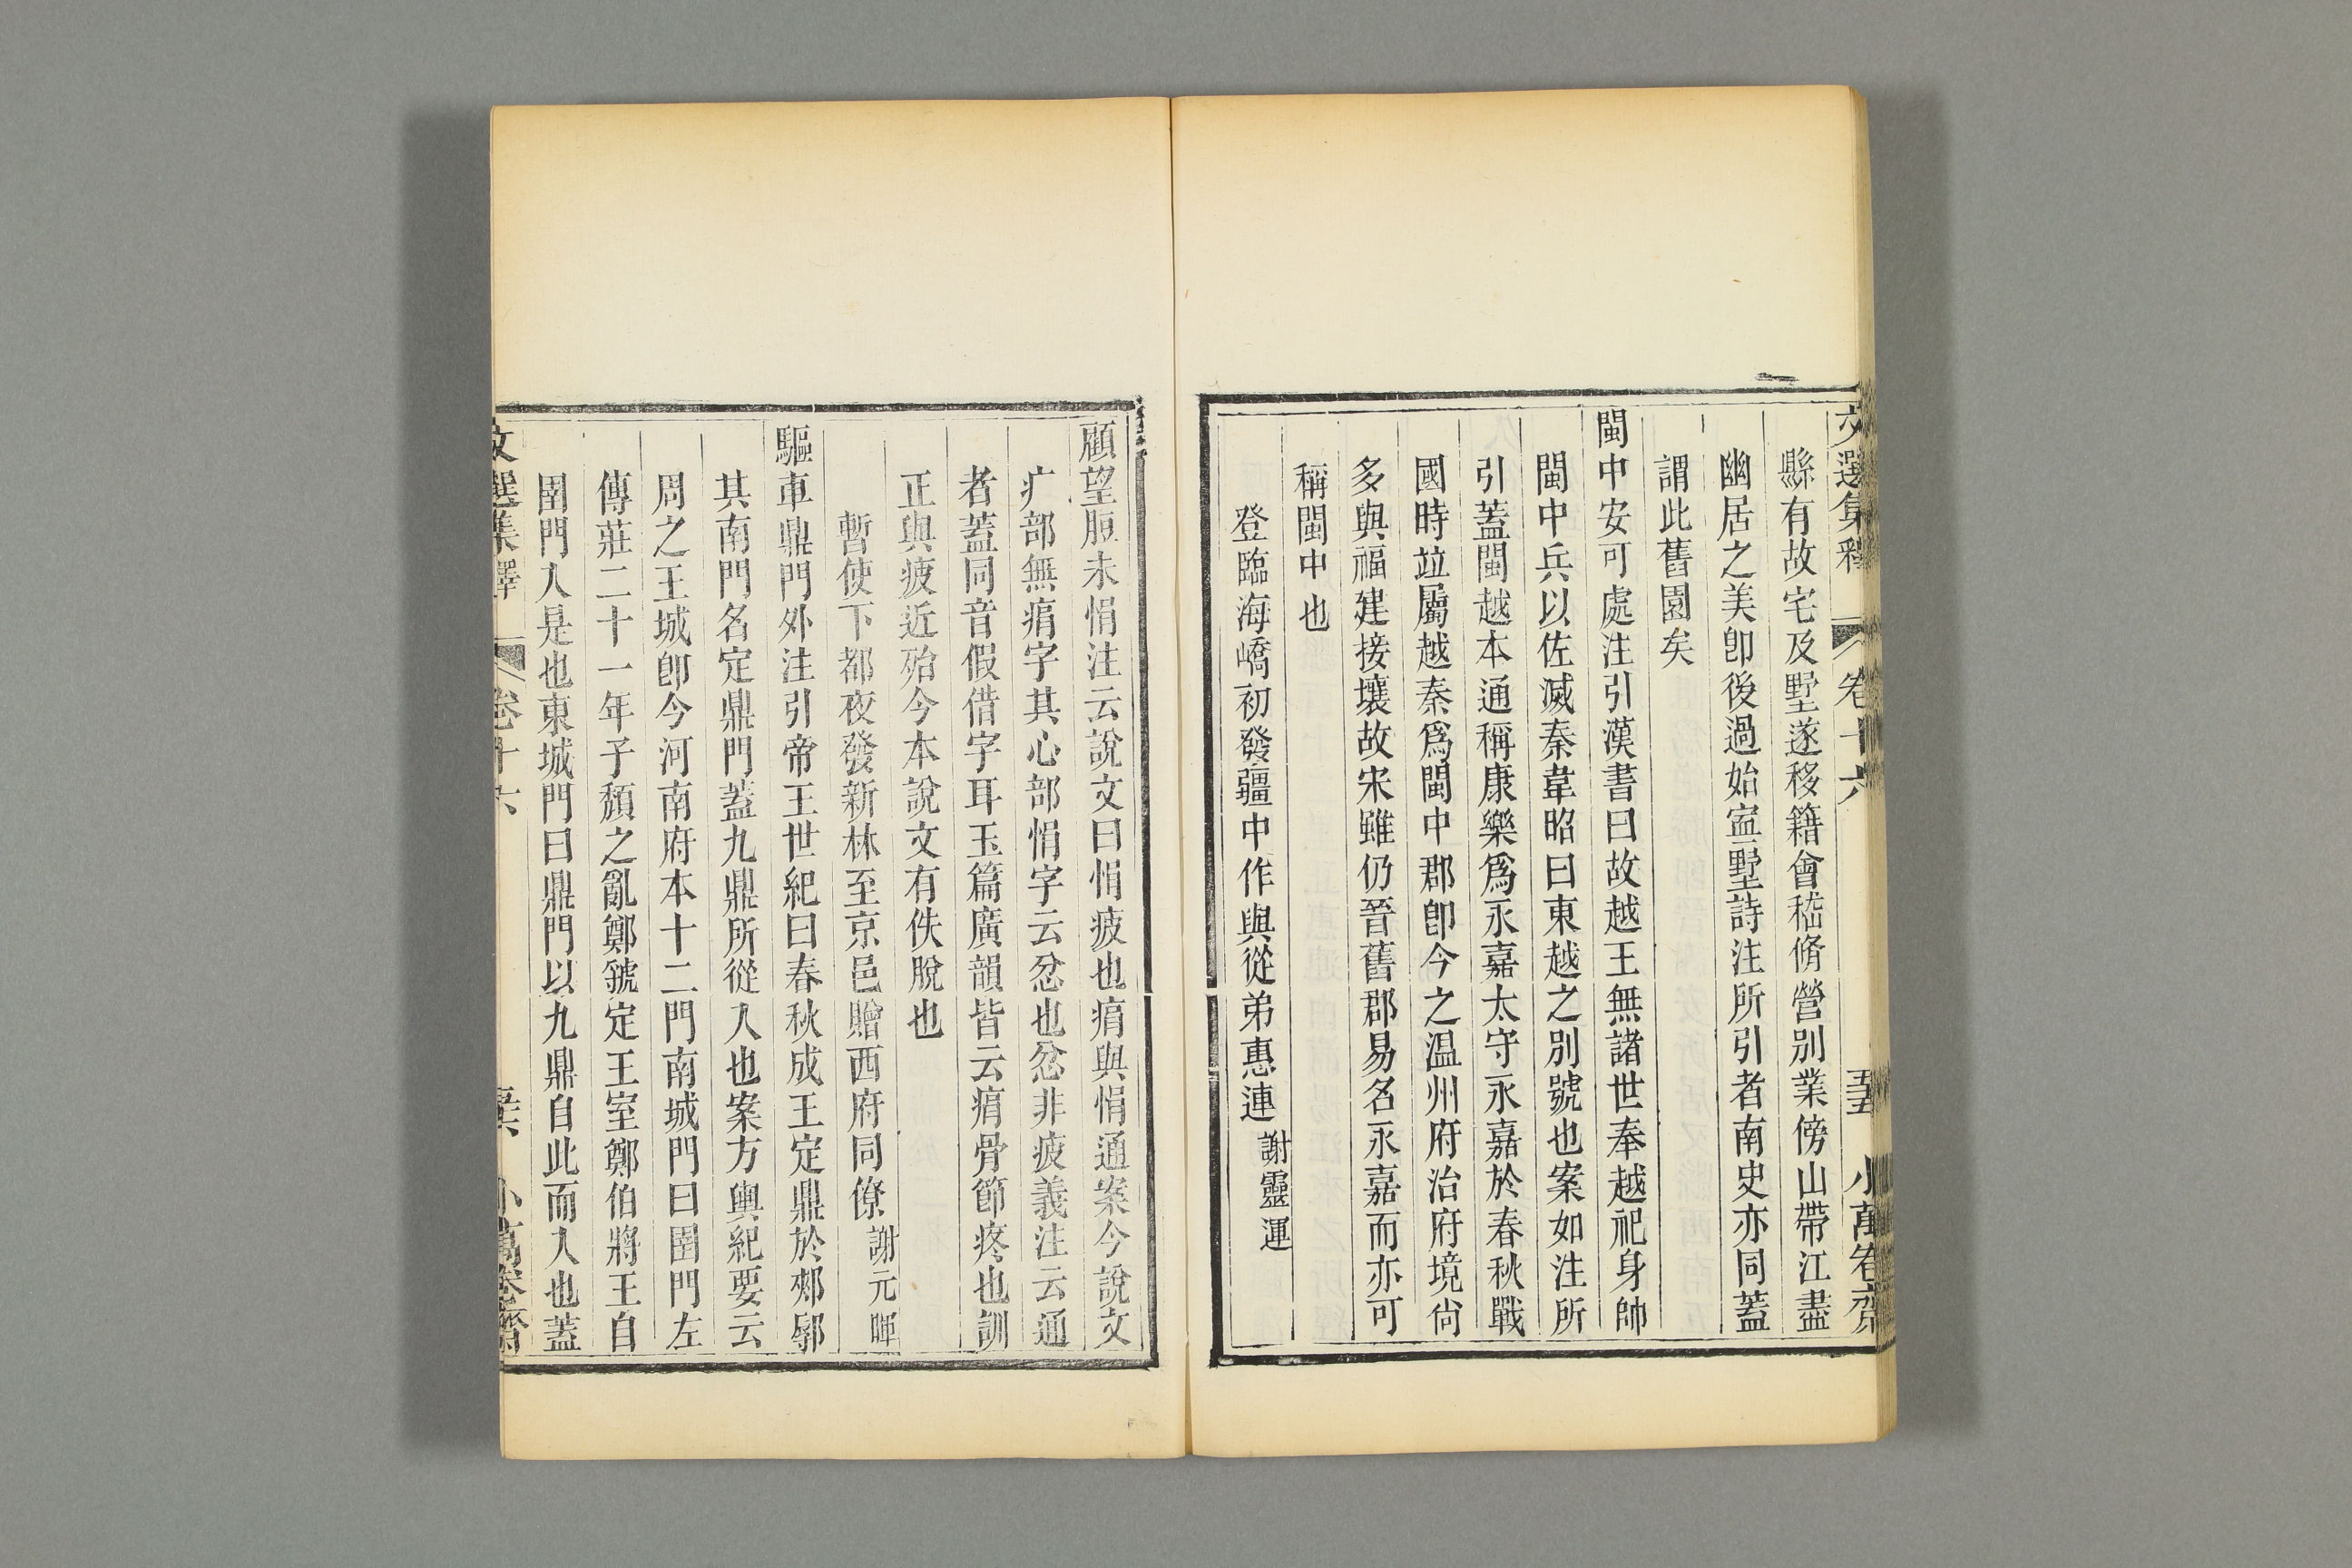 文選集釋 卷十六 小萬卷齋
縣有故宅及墅遂移籍會稽脩營別業傍山帶江盡
幽居之美卽後過始寍墅詩注所引者南史亦同蓋
謂此舊園矣
閩中安可處注引漢書曰故越王無諸世奉越祀身帥
閩中兵以佐滅秦韋昭曰東越之別號也案如注所
引蓋閩越本通稱康樂爲永嘉太守永嘉於春秋戰
國時竝屬越秦爲閩中郡卽今之溫州府治府境尙
多與福建接壤故宋雖仍晉舊郡易名永嘉而亦可
稱閩中也
登臨海嶠初發疆中作與從弟惠連 謝靈運
顧望脰未悁注云說文曰悁疲也痟與悁通案今說文
疒部無痟字其心部悁字云忿也忿非疲義注云通
者蓋同音假借字耳玉篇廣韻皆云痟骨節疼也訓
正與疲近殆今本說文有佚脫也
暫使下都夜發新林至京邑贈西府同僚 謝元暉
驅車鼎門外注引帝王世紀曰春秋成王定鼎於郟鄏
其南門名定鼎門蓋九鼎所從入也案方輿紀要云
周之王城卽今河南府本十二門南城門曰圉門左
傳莊二十一年子頹之亂鄭虢定王室鄭伯將王自
圉門入是也東城門曰鼎門以九鼎自此而入也蓋
文選集釋 卷十六 小萬卷齋